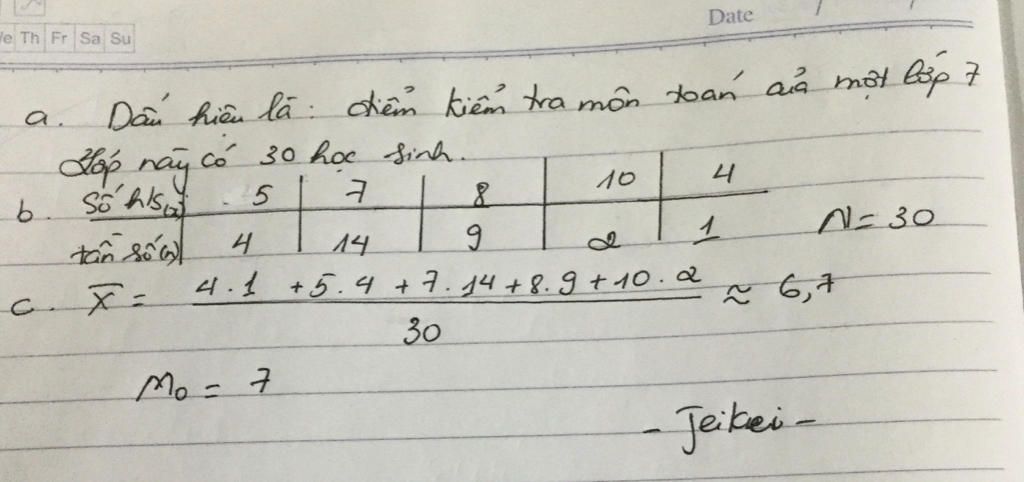 Date
We Th Fr Sa Su
a. Dấu hiệu là: điểm kiểm tra môn toán của một lớp 7
Lớp này có 30 học sinh.
b. Số h/s(x) 5 7 8 10 4
tần số(n) 4 14 9 2 1 N = 30
c. X̄ = 4.1 + 5.4 + 7.14 + 8.9 + 10.2 ≈ 6,7
30
M₀ = 7
- Jeikei -